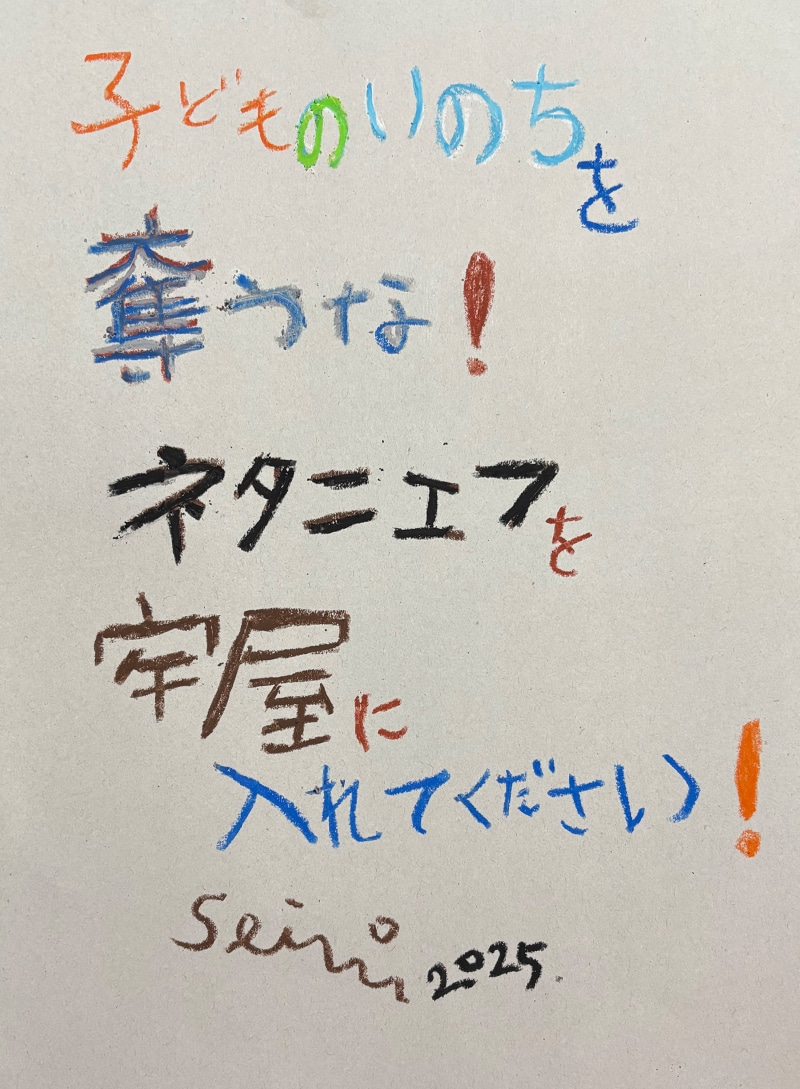 子どものいのちを
奪うな!
ネタニエフを
牢屋に
入れてください!
Seiri 2025.